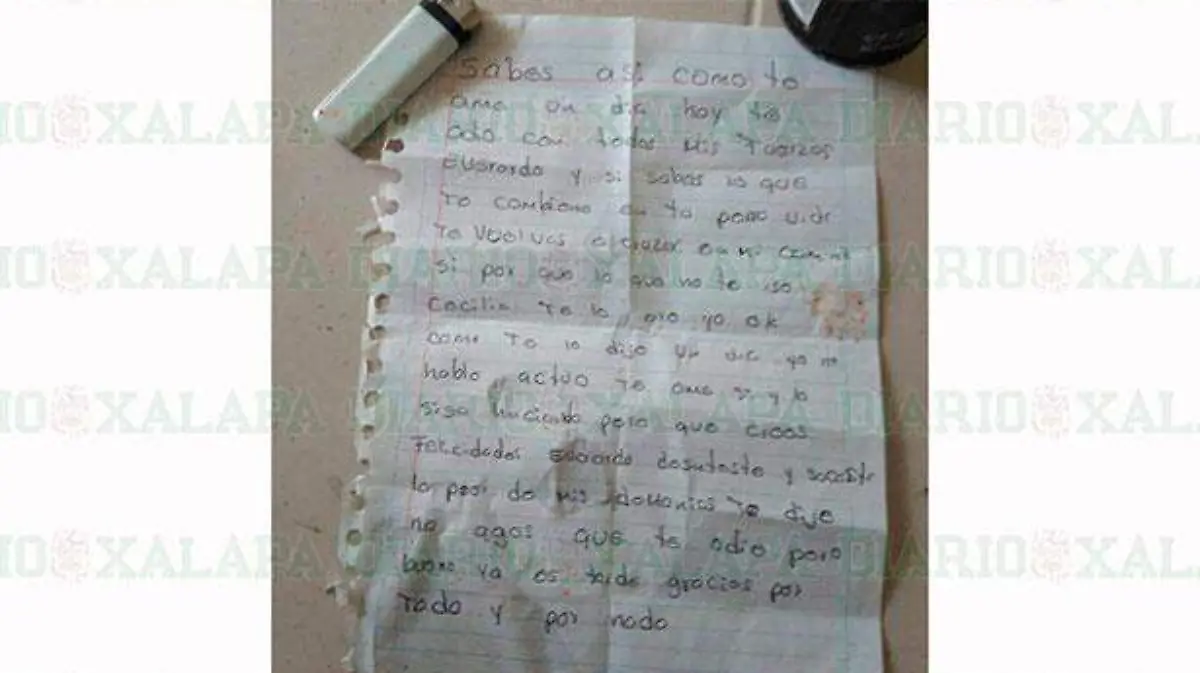 Sabes asi como te
ame un dia hoy te
odio con todas mis fuerzas
Eduardo y si sabes lo que
te conbiene en tu perra vida
te vuelvas a cruzar en mi camino
si por que lo que no te iso
Cecilia te lo are yo ok
como te lo dije un dia yo no
hablo actuo te ame si y lo
sigo haciendo pero que crees
Felicidades Eduardo desataste y sacaste
lo peor de mis demonios te dije
no agas que te odie pero
bueno ya es tarde gracias por
todo y por nada
DIARIO XALAPA